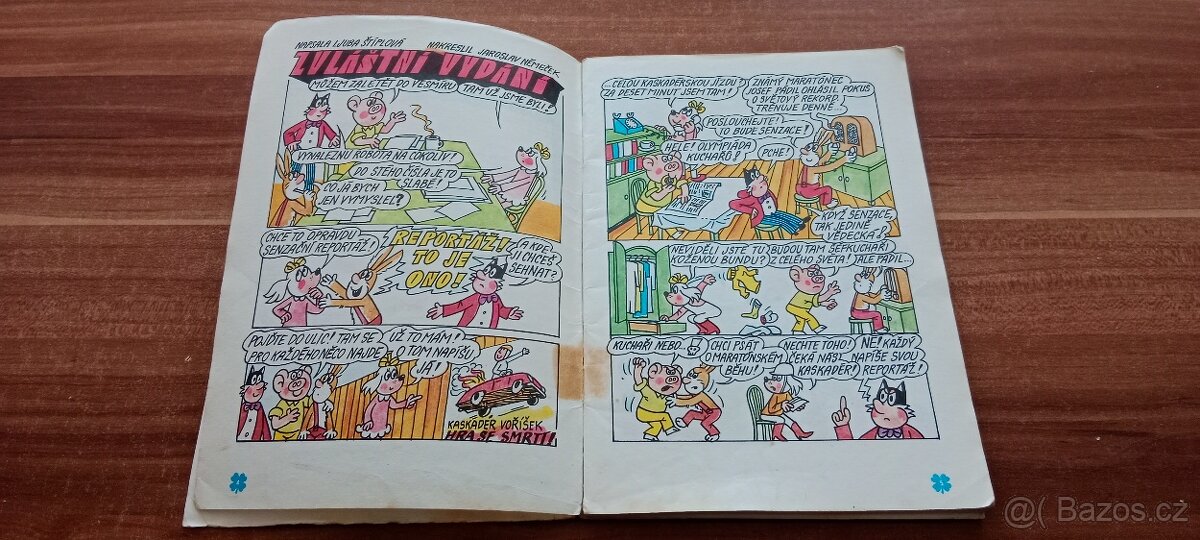 NAPSALA LJUBA ŠTÍPLOVÁ
NAKRESLIL JAROSLAV NĚMEČEK
ZVLÁŠTNÍ VYDÁNÍ
MŮŽEM ZALETĚT DO VESMÍRU
TAM UŽ JSME BYLI!
VYNALEZNU ROBOTA NA COKOLIV!
DO STÉHO ČÍSLA JE TO
SLABÉ!
CO JÁ BYCH
JEN VYMYSLEL?
CHCE TO OPRAVDU
SENZAČNÍ REPORTÁŽ!
REPORTÁŽ!
TO JE
ONO!
A KDE
JI CHCEŠ
SEHNAT?
POJĎTE DO ULIC! TAM SE
PRO KAŽDÉHO NĚCO NAJDE
UŽ TO MÁM!
O TOM NAPÍŠU
JÁ!
KASKADÉR VOŘÍŠEK
HRA SE SMRTÍ!
4
...CELOU KASKADÉRSKOU JÍZDU?
ZA DESET MINUT JSEM TAM!
ZNÁMÝ MARATÓNEC
JOSEF PÁDIL OHLÁSIL POKUS
O SVĚTOVÝ REKORD.
TRÉNUJE DENNĚ...
POSLOUCHEJTE!
TO BUDE SENZACE!
HELE! OLYMPIÁDA
KUCHAŘŮ!
PCHE!
KDYŽ SENZACE,
TAK JEDINĚ
VĚDECKÁ!
NEVIDĚLI JSTE TU
KOŽENOU BUNDU?
BUDOU TAM ŠÉFKUCHAŘI
Z CELÉHO SVĚTA!
ALE PÁDIL...
KUCHAŘI NEBO
CHCI PSÁT
O MARATÓNSKÉM
BĚHU!
NECHTE TOHO!
ČEKÁ NÁS
KASKADÉR!
NE! KAŽDÝ
NAPÍŠE SVOU
REPORTÁŽ!
5
@( Bazos.cz